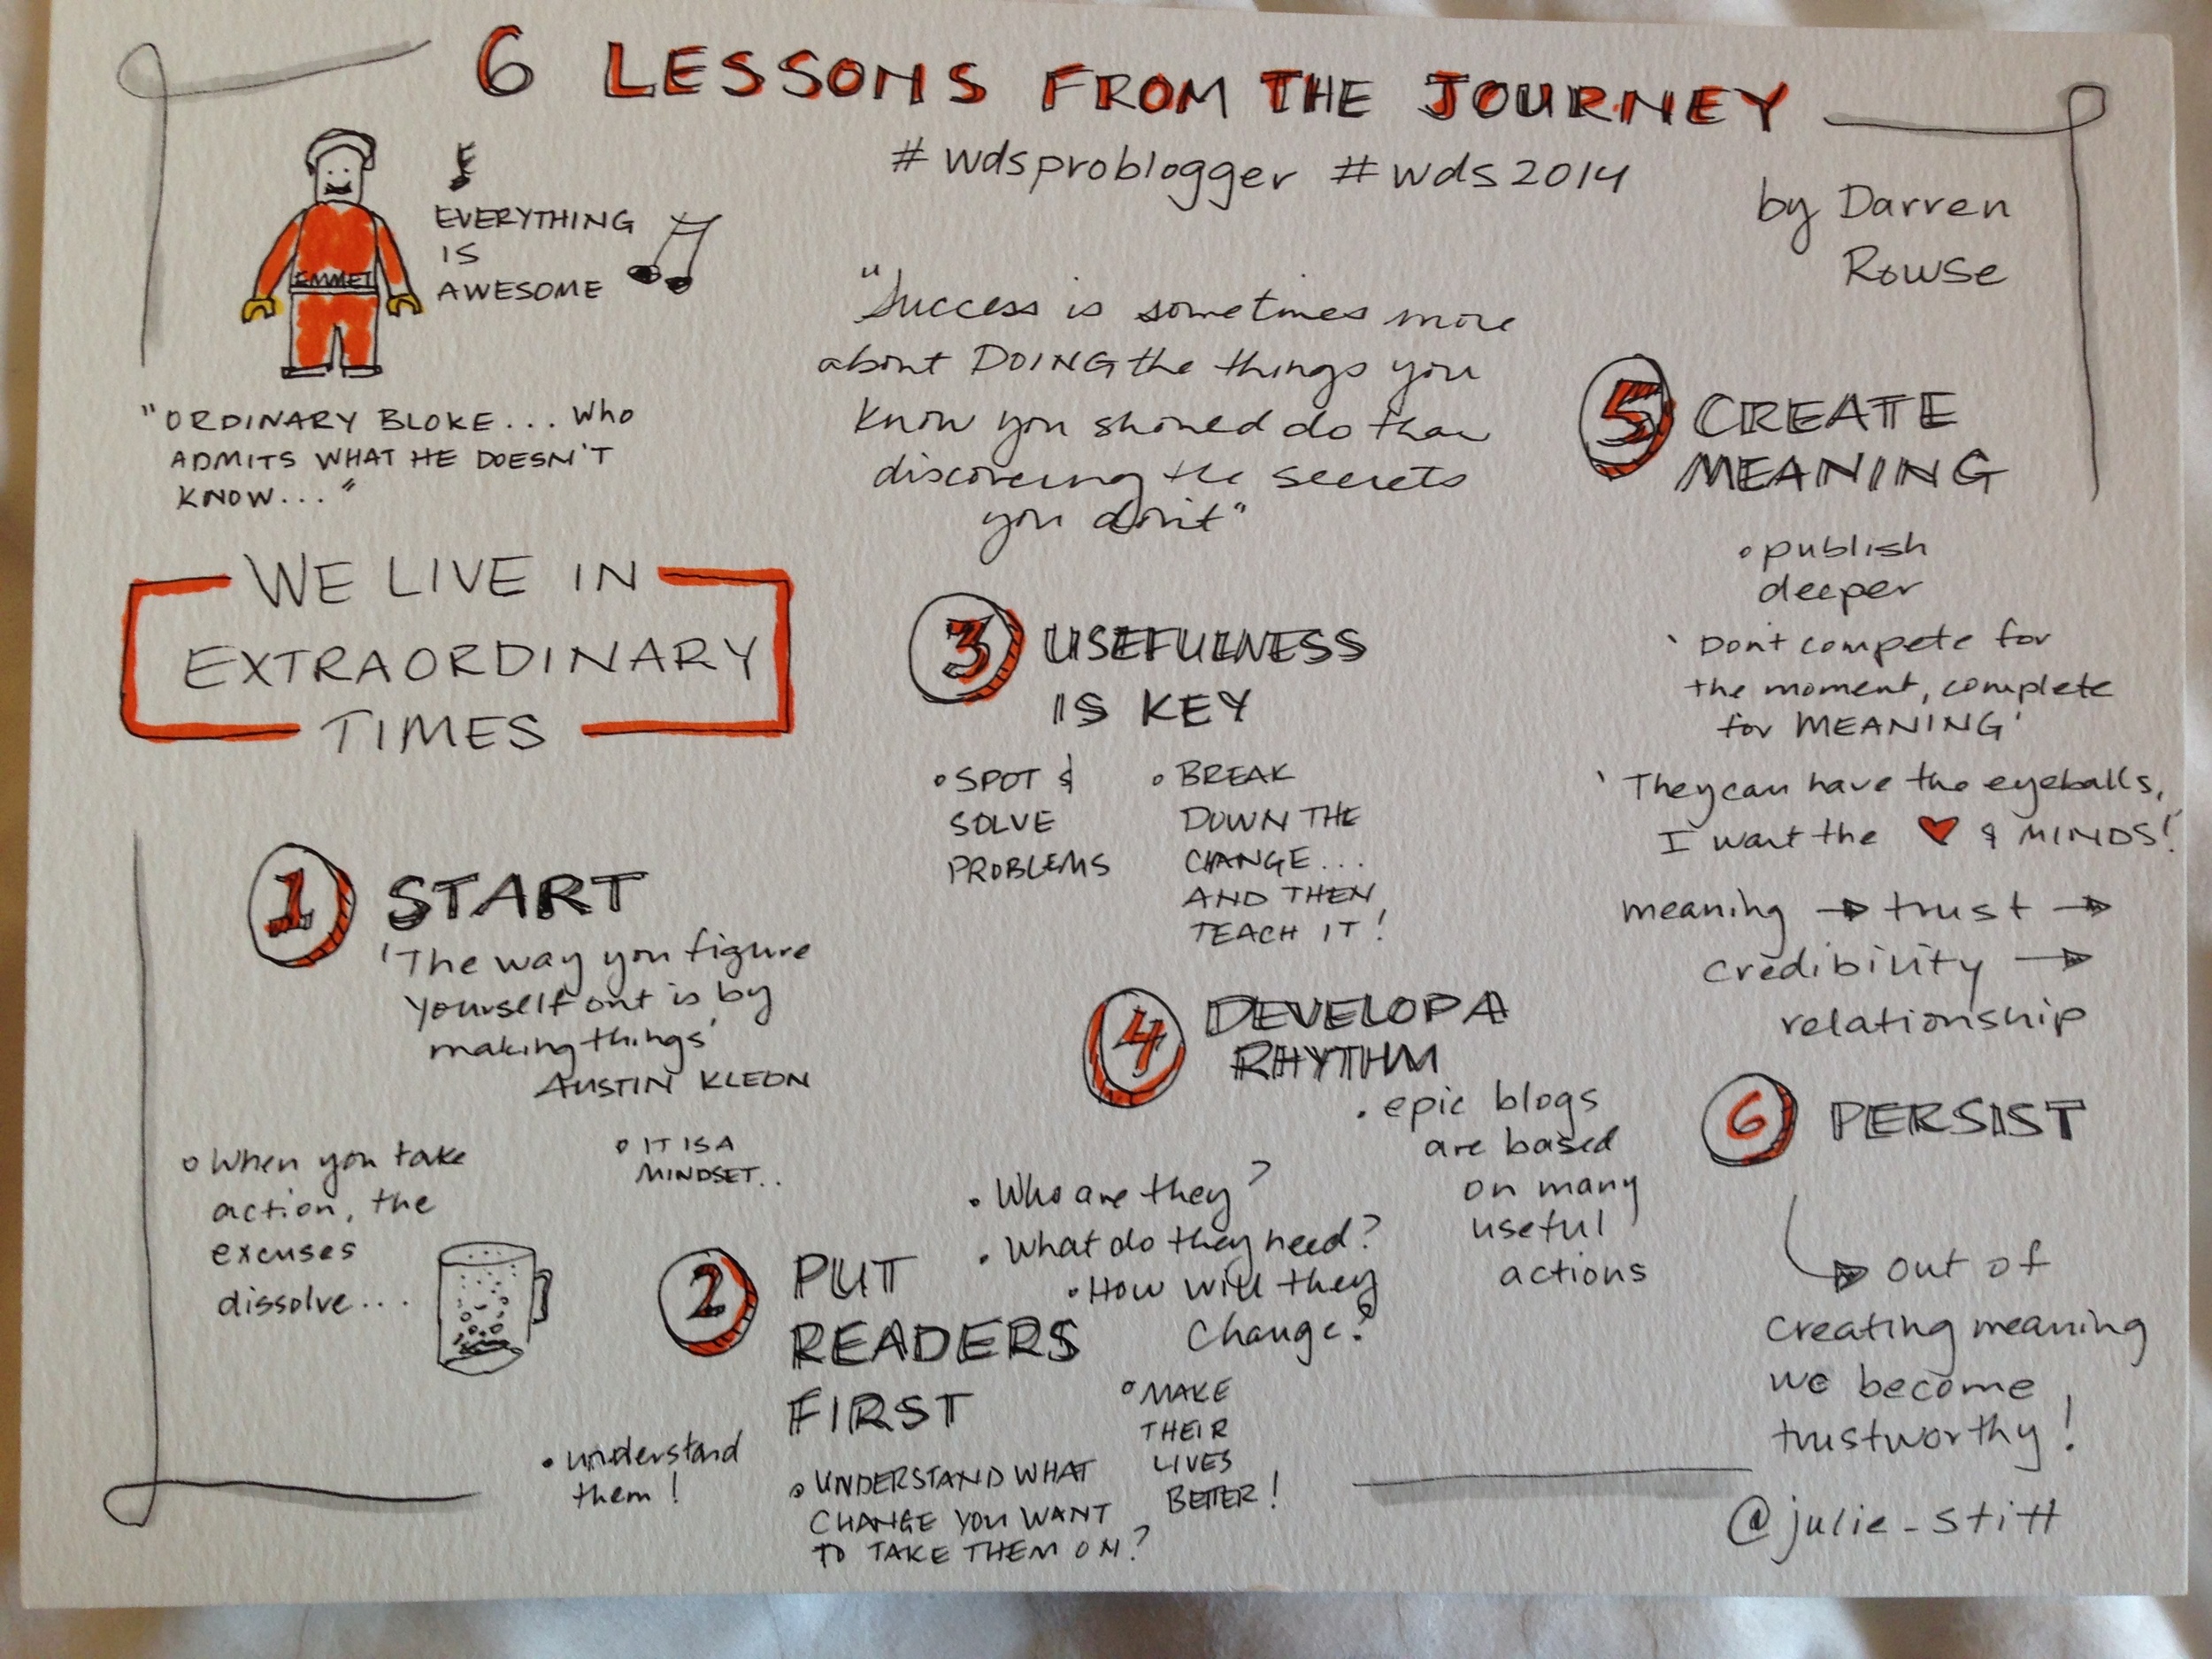 6 LESSONS FROM THE JOURNEY
#wdsproblogger #wds2014
by Darren
Rowse
EVERYTHING
IS
AWESOME
EMMET
"ORDINARY BLOKE... Who
ADMITS WHAT HE DOESN'T
KNOW..."
"Success is sometimes more
about DOING the things you
know you should do than
discovering the secrets
you don't"
WE LIVE IN
EXTRAORDINARY
TIMES
1 START
'The way you figure
yourself out is by
making things'
AUSTIN KLEON
When you take
action, the
excuses
dissolve...
IT IS A
MINDSET..
2 PUT
READERS
FIRST
• understand
them!
UNDERSTAND WHAT
CHANGE YOU WANT
TO TAKE THEM ON?
• Who are they?
• What do they need?
• How will they
change?
MAKE
THEIR
LIVES
BETTER!
3 USEFULNESS
IS KEY
SPOT &
SOLVE
PROBLEMS
BREAK
DOWN THE
CHANGE...
AND THEN
TEACH IT!
4 DEVELOP A
RHYTHM
• epic blogs
are based
on many
useful
actions
5 CREATE
MEANING
• publish
deeper
'Don't compete for
the moment, complete
for MEANING'
'They can have the eyeballs,
I want the ♥ & MINDS!'
meaning → trust →
credibility →
relationship
6 PERSIST
→ out of
creating meaning
we become
trustworthy!
@julie_stitt